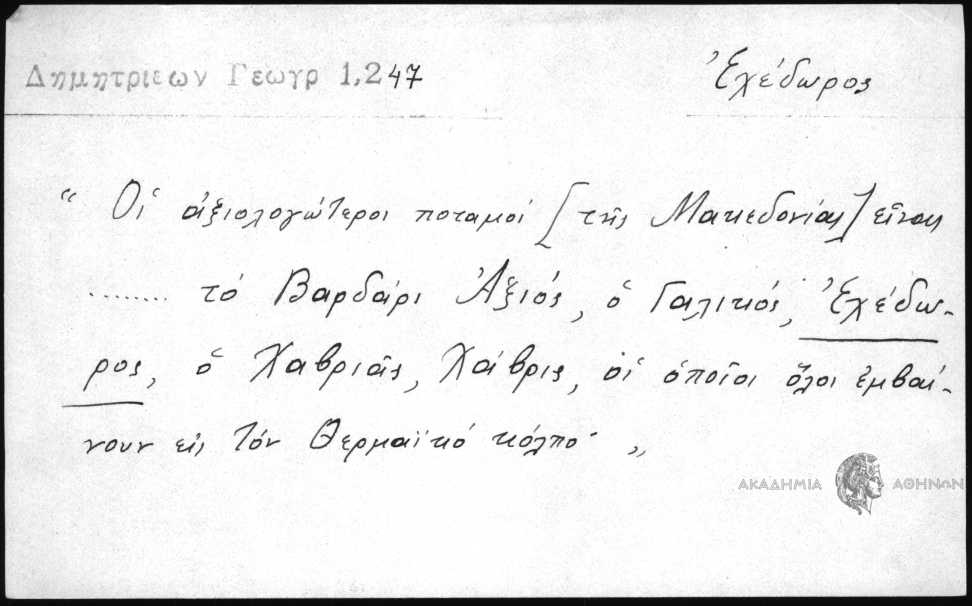 Δημητριεων Γεωγρ 1,247
Ἐχέδωρος
“ Οἱ ἀξιολογώτεροι ποταμοί [τῆς Μακεδονίας] εἶναι
........ τό Βαρδάρι Ἀξιός, ὁ Γαλικός, Ἐχέδω-
ρος, ὁ Χαβριᾶς, Χάβρις, οἱ ὁποῖοι ὅλοι ἐμβαί-
νουν εἰς τόν Θερμαϊκό κόλπο· „
ΑΚΑΔΗΜΙΑ ΑΘΗΝΩΝ